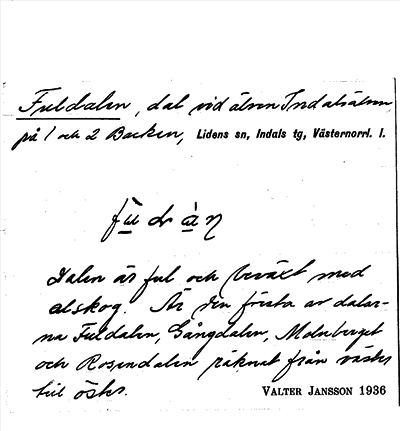 Fuldalen, dal vid älven Indalsälven
på 1 och 2 Backen, Lidens sn, Indals tg, Västernorrl. l.
Dalen är ful och beväxt med
alskog. Är den första av dalar-
na Fuldalen, Gångdalen, Molnberget
och Rosendalen räknat från väster
till öster. VALTER JANSSON 1936